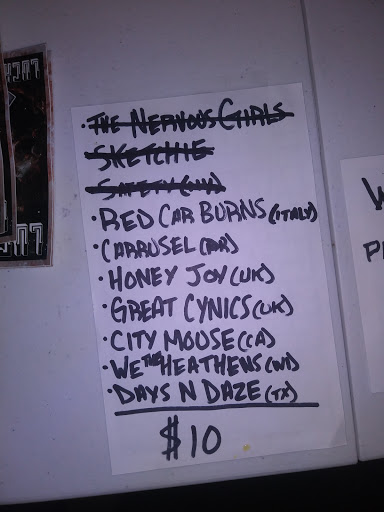 · THE NERVOUS GIRLS
SKETCHIE
SAFETY
· RED CAR BURNS (ITALY)
· CARRUSEL
· HONEY JOY (UK)
· GREAT CYNICS (UK)
· CITY MOUSE (CA)
· WE THE HEATHENS (WI)
· DAYS N DAZE (TX)
$10